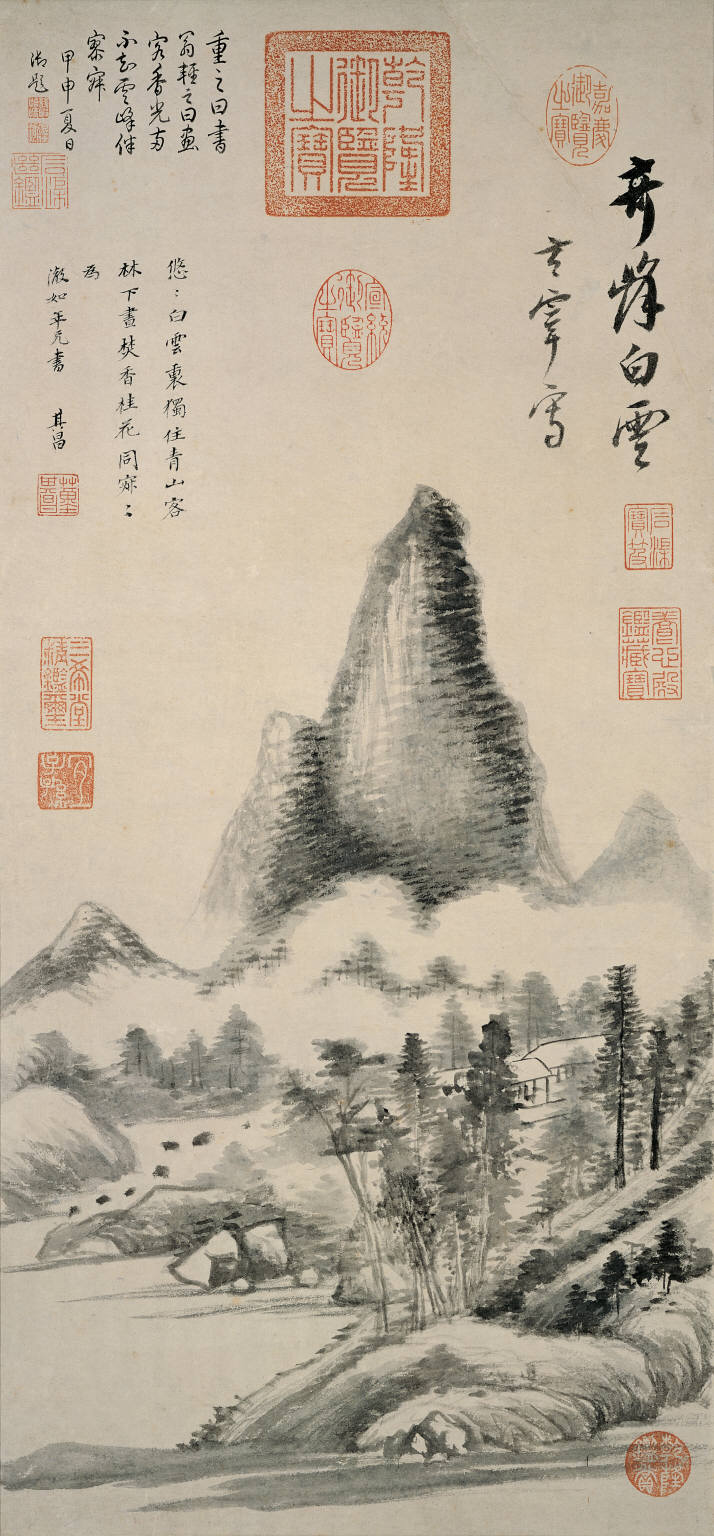 奇峰白雲
玄宰寫
嘉慶御覽之寶
乾隆御覽之寶
宣統御覽之寶
石渠寶笈
養心殿鑑藏寶
重之曰書
翁輕之曰畫
客香光两
不知雲峰伴
寥寂
甲申夏日
御題
悠〻白雲裏獨住青山客
林下晝焚香桂花同寂〻
為
澂如年兄書 其昌
董其昌
三希堂精鑑璽
宜子孫
乾隆鑑賞